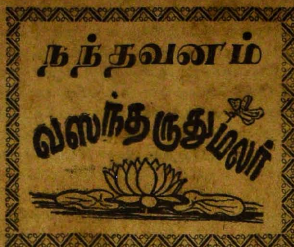 நந்தவனம்
வஸந்தருதுமலர்